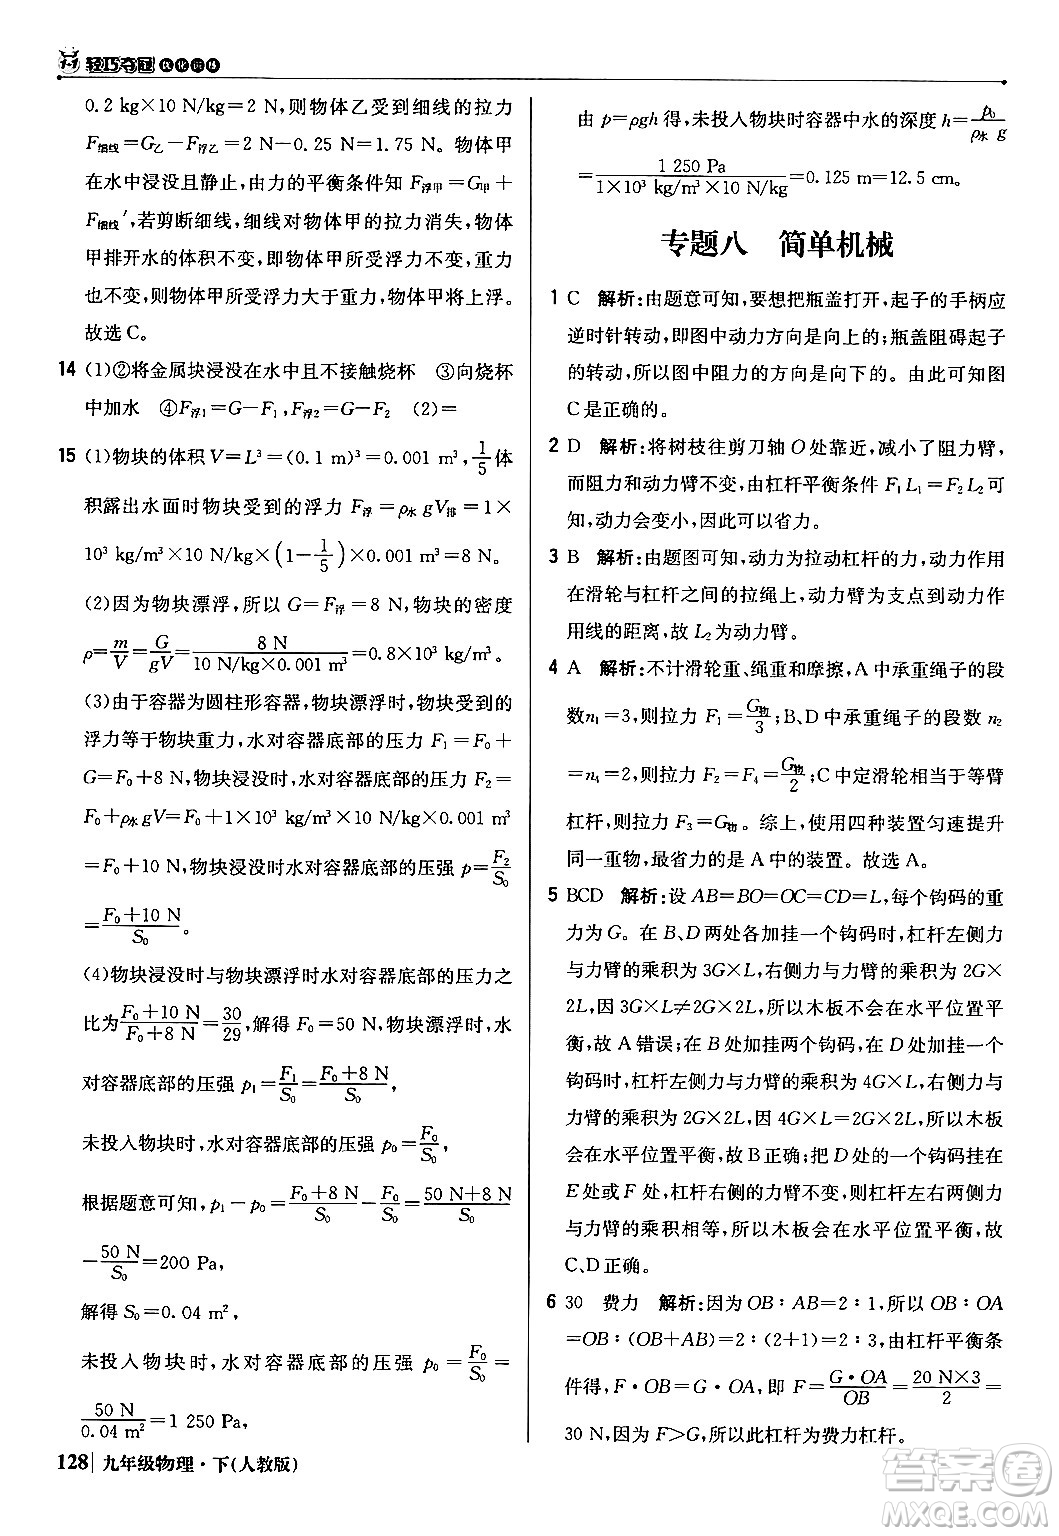 轻巧夺冠 优化训练
0.2 kg×10 N/kg=2 N，则物体乙受到细线的拉力
F细线=G乙−F浮乙=2 N−0.25 N=1.75 N。物体甲
在水中浸没且静止，由力的平衡条件知 F浮甲=G甲+
F细线′，若剪断细线，细线对物体甲的拉力消失，物体
甲排开水的体积不变，受到的浮力不变，重力
也不变，物体甲所受浮力大于重力，将上浮。
故选C。
14 (1)②将金属块浸没在水中且不接触烧杯 ③向烧杯
中加水 ④F浮1=G−F1，F浮2=G−F2 (2)=
15 (1)物块的体积V=L³=(0.1 m)³=0.001 m³，1/5体
积露出水面时物块受到的浮力 F浮=ρ水gV排=1×
10³ kg/m³×10 N/kg×(1−1/5)×0.001 m³=8 N。
(2)因为物块漂浮，所以 G=F浮=8 N，物块的密度
ρ=m/V=G/gV=8 N/(10 N/kg×0.001 m³)=0.8×10³ kg/m³。
(3)由于容器为圆柱形容器，物块漂浮时，受到的
浮力等于物块重力，水对容器底部的压力 F1=F0+
G=F0+8 N，物块浸没时，水对容器底部的压力 F2=
F0+ρ水gV=F0+1×10³ kg/m³×10 N/kg×0.001 m³
=F0+10 N，物块浸没时水对容器底部的压强 p=F2/S0
=(F0+10 N)/S0。
(4)物块浸没时与物块漂浮时水对容器底部的压力之
比为(F0+10 N)/(F0+8 N)=30/29，解得 F0=50 N，物块漂浮时，水
对容器底部的压强 p1=F1/S0=(F0+8 N)/S0，
未投入物块时，水对容器底部的压强 p0=F0/S0，
根据题意可知，p1−p0=(F0+8 N)/S0−F0/S0=(50 N+8 N)/S0
−50 N/S0=200 Pa，
解得 S0=0.04 m²，
未投入物块时，水对容器底部的压强 p0=F0/S0=
50 N/0.04 m²=1 250 Pa，
128 九年级物理·下(人教版)
由 p=ρgh 得，未投入物块时容器中水的深度 h=p0/(ρ水 g)
=1 250 Pa/(1×10³ kg/m³×10 N/kg)=0.125 m=12.5 cm。
专题八 简单机械
1 C 解析：由题意可知，要想把瓶盖打开，起子的手柄应
逆时针转动，即图中动力方向是向上的；瓶盖阻碍起子
的转动，所以图中阻力的方向是向下的。由此可知图
C是正确的。
2 D 解析：将树枝往剪刀轴 O 处靠近，减小了阻力臂，
而阻力和动力臂不变，由杠杆平衡条件 F1L1=F2L2可
知，动力会变小，因此可以省力。
3 B 解析：由题图可知，动力为拉动杠杆的力，动力作用
在滑轮与杠杆之间的拉绳上，动力臂为支点到动力作
用线的距离，故 L2为动力臂。
4 A 解析：不计滑轮重、绳重和摩擦，A中承重绳子的段
数n1=3，则拉力 F1=G物/3；B、D中承重绳子的段数 n2
=n4=2，则拉力 F2=F4=G物/2；C中定滑轮相当于等臂
杠杆，则拉力 F3=G物。综上，使用四种装置匀速提升
同一重物，最省力的是 A 中的装置。故选 A。
5 BCD 解析：设 AB=BO=OC=CD=L，每个钩码的重
力为 G。在 B、D 两处各加挂一个钩码时，杠杆左侧力
与力臂的乘积为 3G×L，右侧力与力臂的乘积为 2G×
2L，因 3G×L≠2G×2L，所以木板不会在水平位置平
衡，故 A 错误；在 B 处加挂两个钩码，D 处加挂一个
钩码时，杠杆左侧力与力臂的乘积为 4G×L，右侧力与
力臂的乘积为 2G×2L，因 4G×L=2G×2L，所以木板
在水平位置平衡，故 B 正确；把 D 处的钩码挂在
E 处或 F 处，杠杆右侧的力臂不变，杠杆左右两侧力
与力臂的乘积相等，所以木板会在水平位置平衡，故
C、D正确。
6 30 费力 解析：因为 OB∶AB=2∶1，所以 OB∶OA
=OB∶(OB+AB)=2∶(2+1)=2∶3，由杠杆平衡条
件得，F·OB=G·OA，即 F=G·OA/OB=20 N×3/2=
30 N，因为 F>G，所以此杠杆为费力杠杆。
答案圈
MXQE.COM